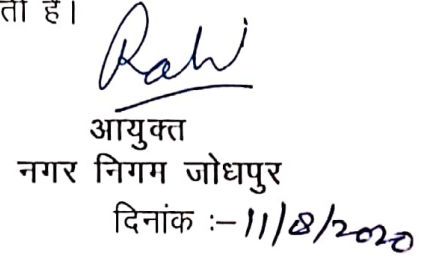 ती है।
आयुक्त
नगर निगम जोधपुर
दिनांक :– 11/8/2020